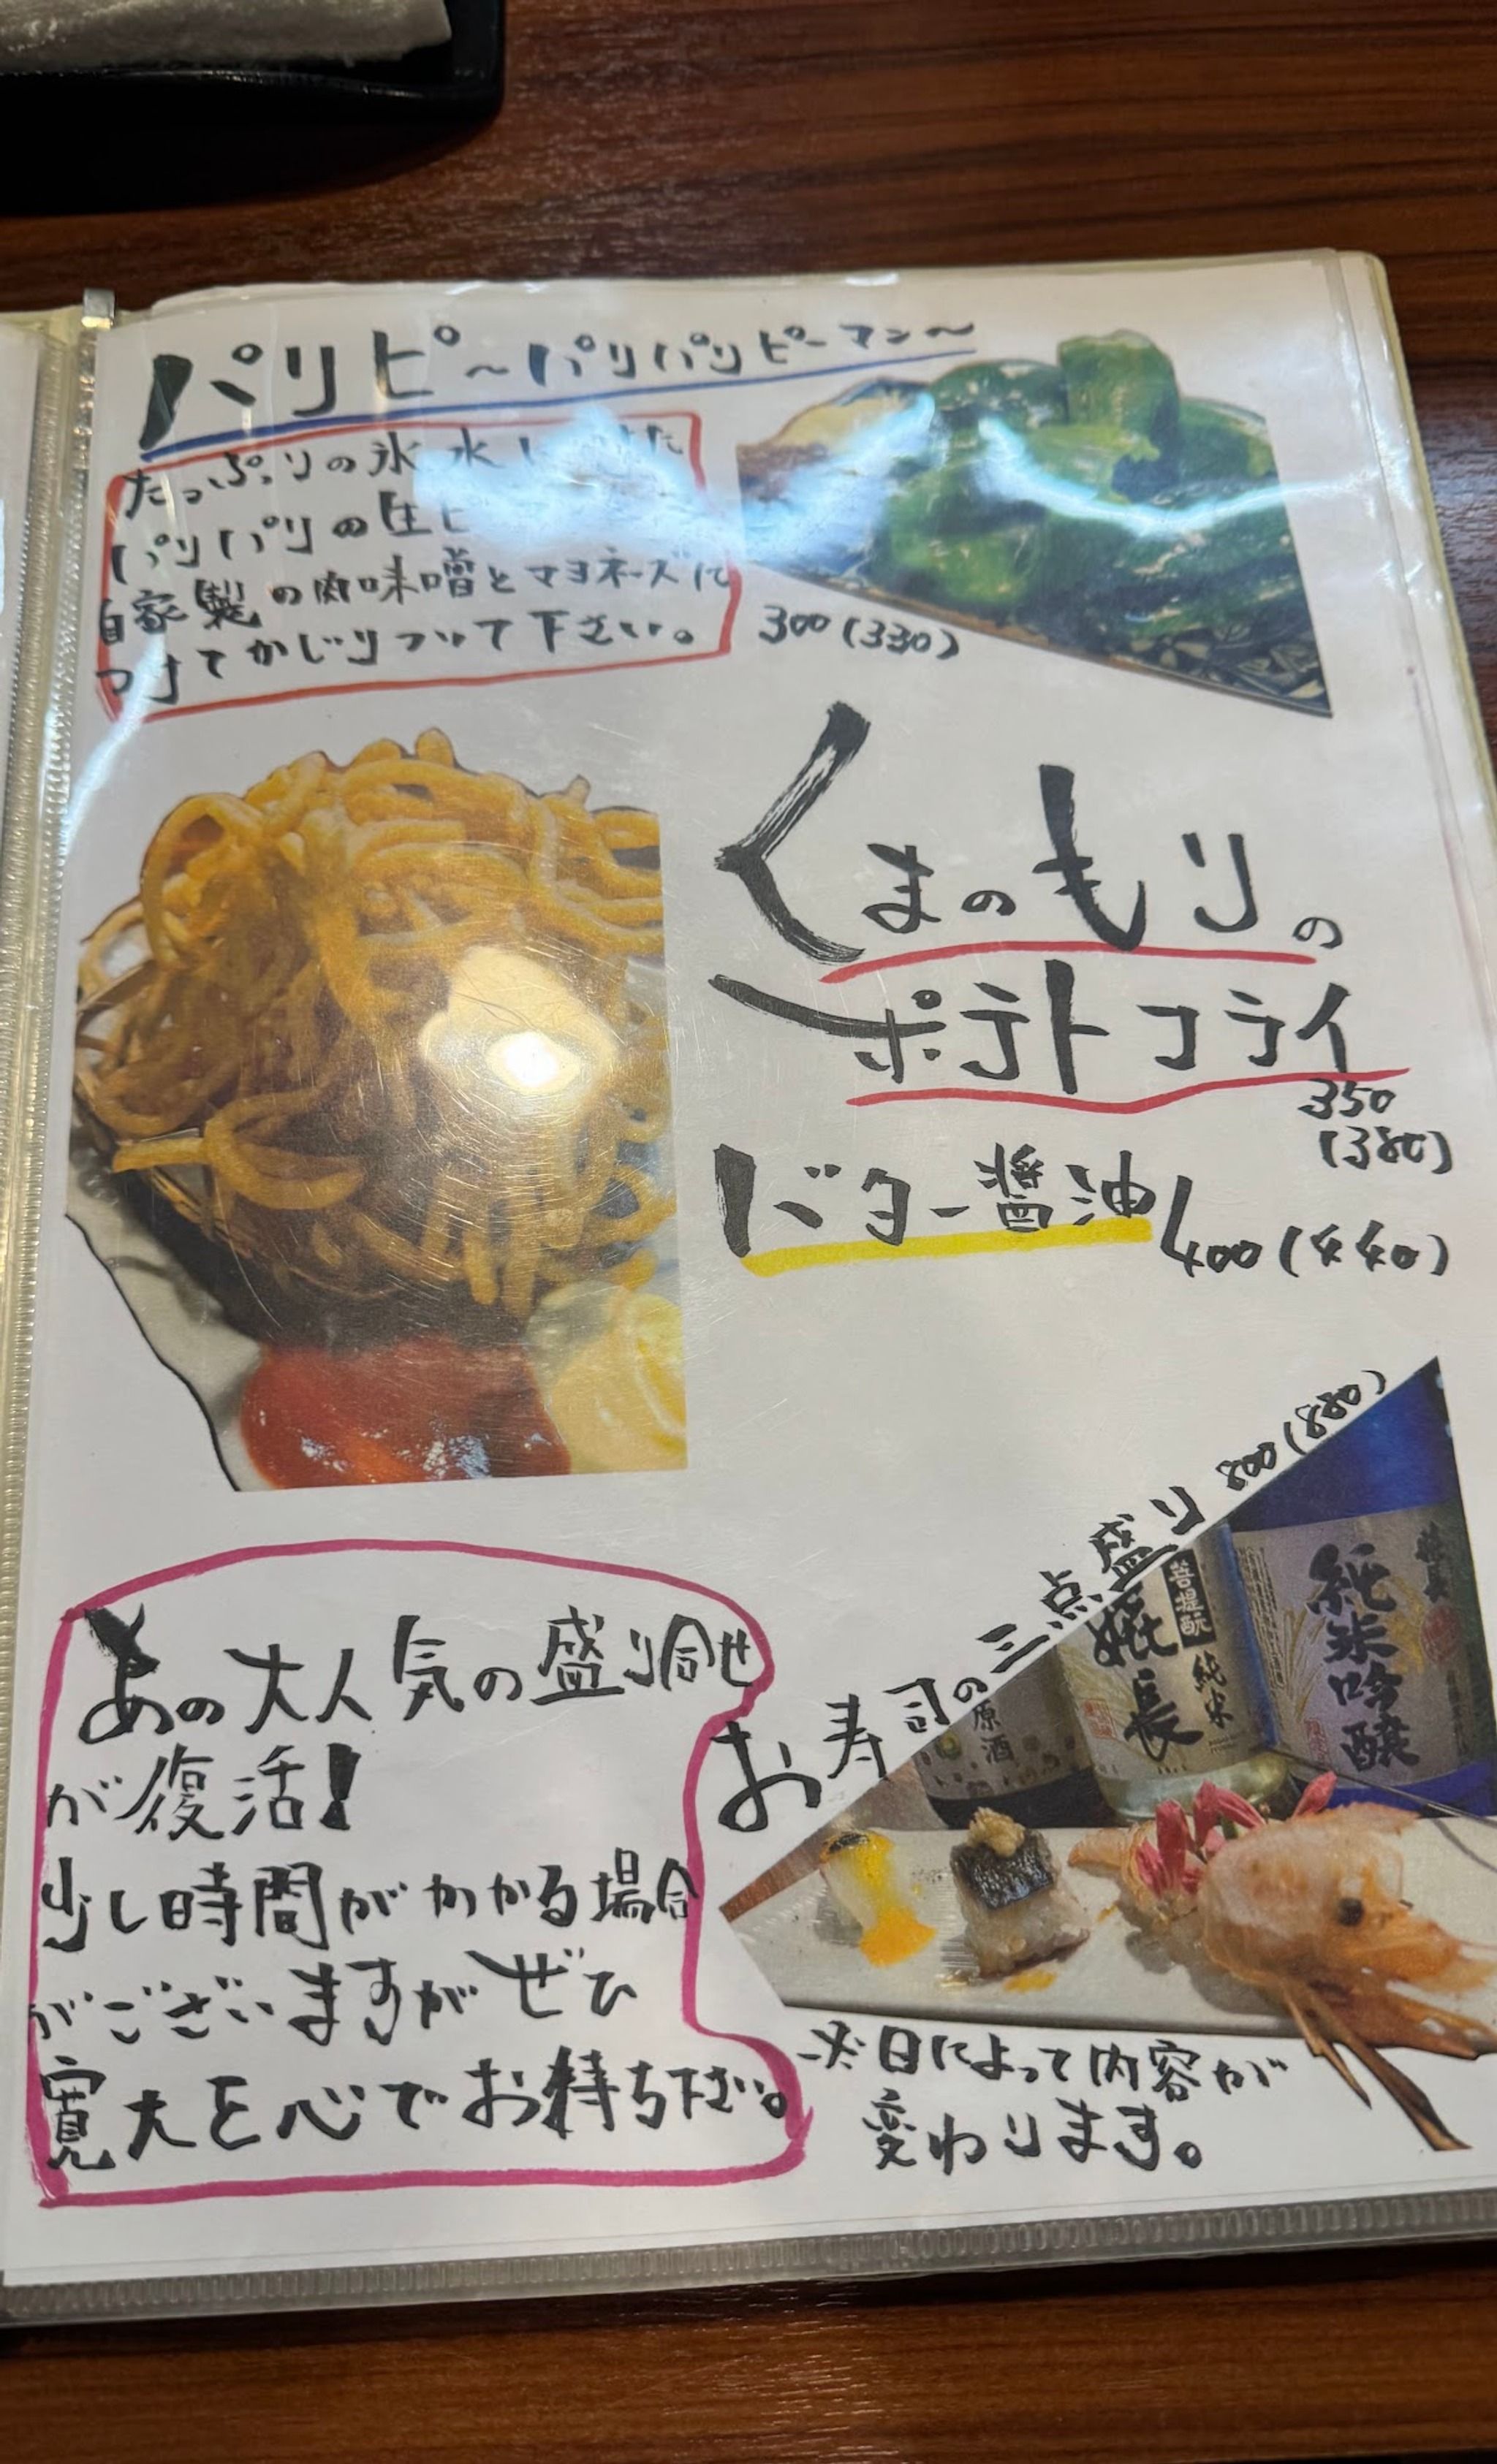 パリピ～パリパリピーマン～
たっぷりの氷水に
パリパリの生ピ
自家製の肉味噌とマヨネーズに
つけてかじりついて下さい。
300(330)
くまのもりの
ポテトフライ
350
(380)
バター醤油
400(440)
お寿司の三点盛り 800(880)
原酒
菩提酛
純米
長
純米吟醸
あの大人気の盛り合せ
が復活!
少し時間がかかる場合
がございますがぜひ
寛大な心でお待ち下さい。
※日によって内容が
変わります。